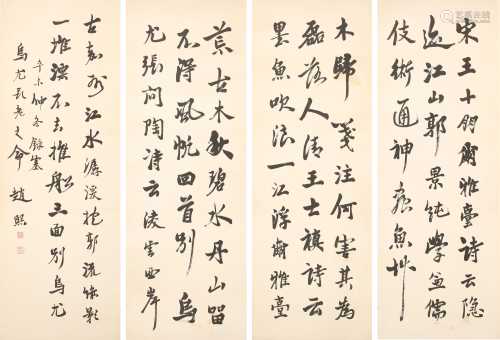 宋王十朋爾雅臺詩云隱
迹江山郭景純學兼儒
伎術通神 魚艸
木歸箋注何害其為
磊落人清王士禛詩云
墨魚吹浪一江浮爾雅臺
荒古木秋碧水丹山留
不得風帆回首別烏
尤張問陶詩云凌雲西岸
古嘉州江水潺湲抱郭流綠影
一堆漂不去推船三面別烏尤
辛未仲冬錄塞
烏尤長老之命 趙熙